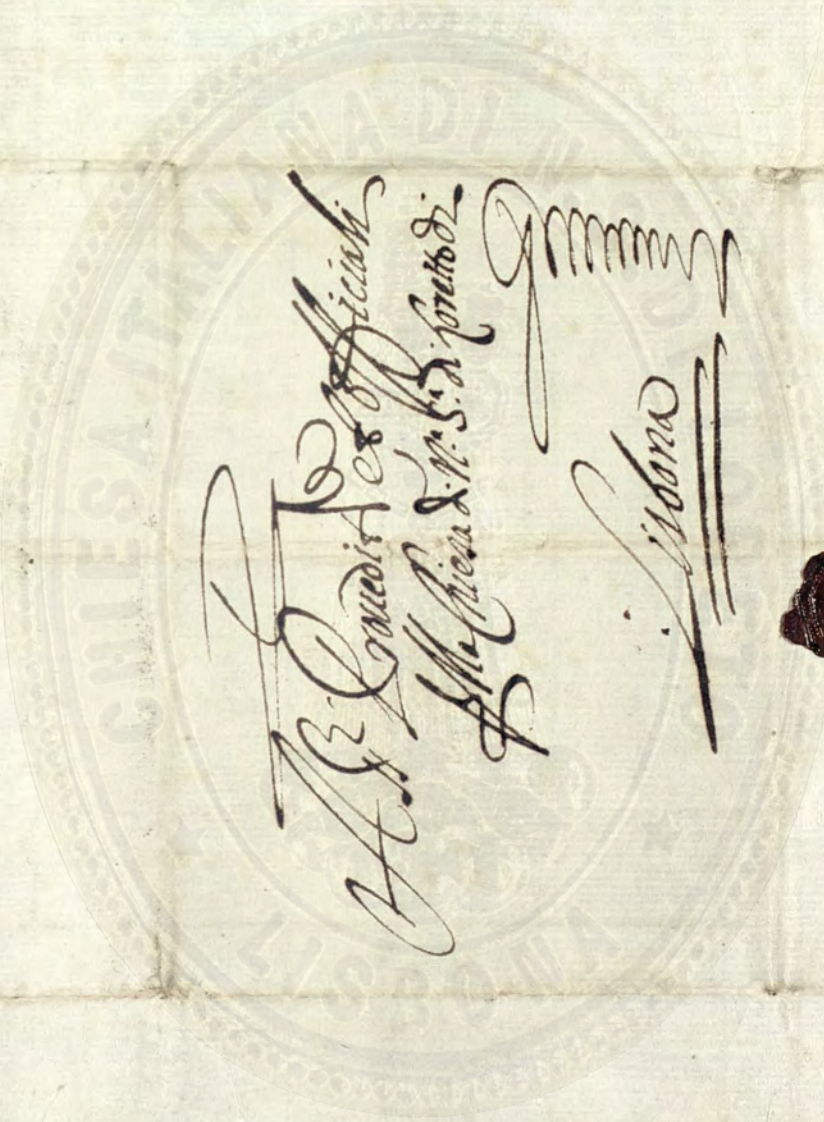 Alli Ss.ri Proveditre et offitiali
della Chiesa di N.ra S.ra di Loretto di
Lisbona
CHIESA ITALIANA DI N. S. DI LORETO
LISBONA